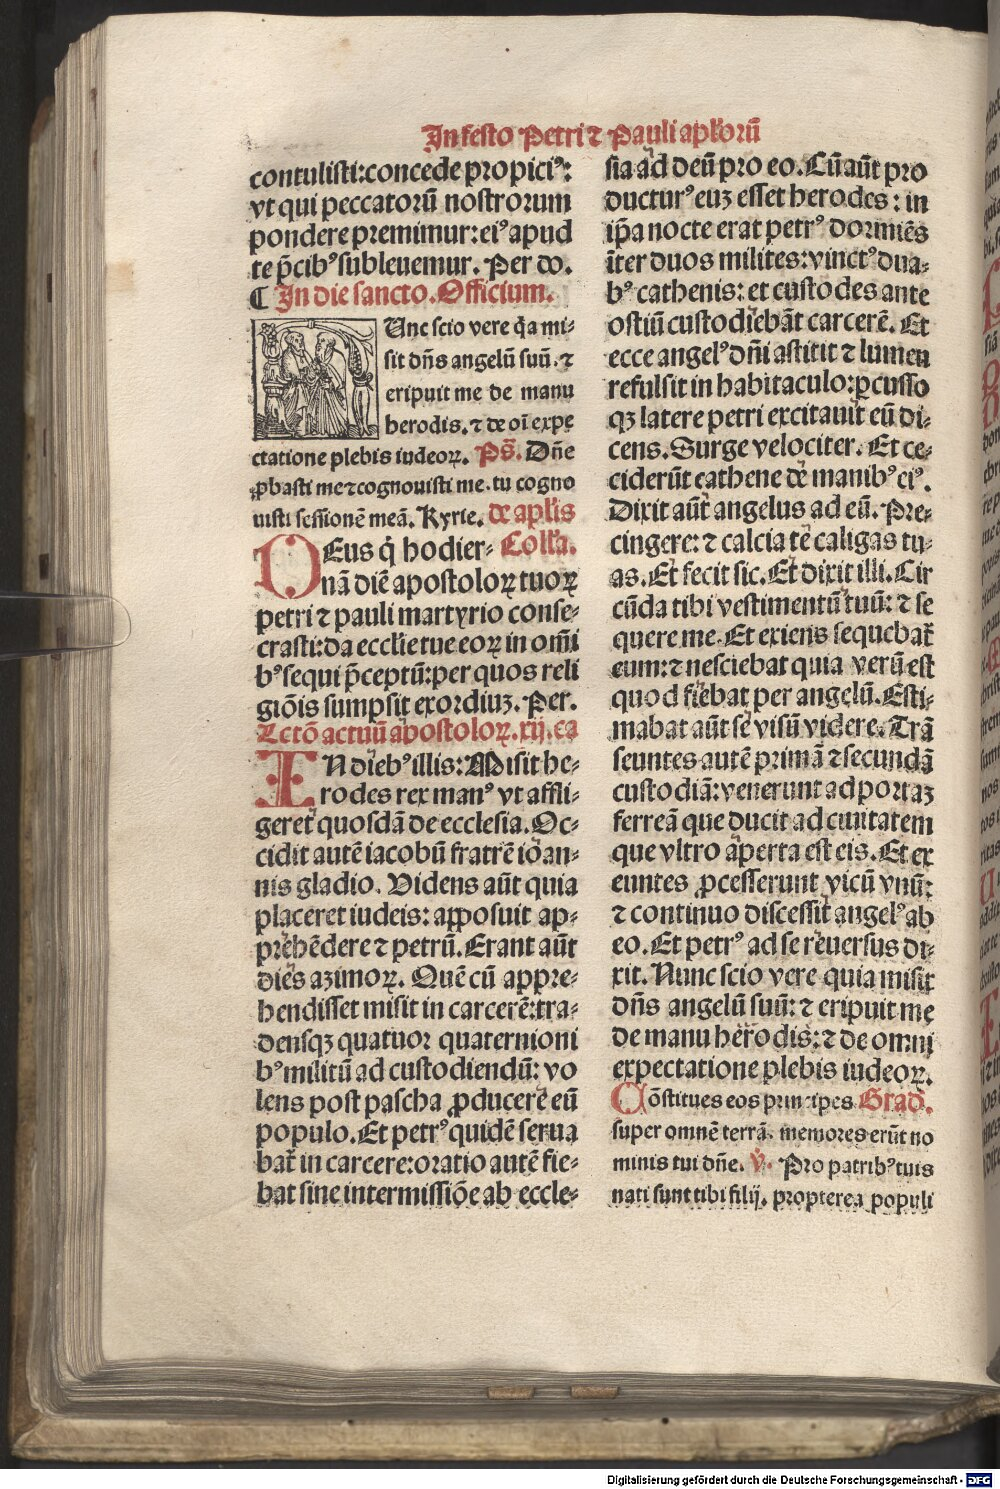 In festo Petri ⁊ Pauli apl'orū
contulisti:concede propici⁹:
vt qui peccatorū nostrorum
pondere premimur:ei⁹ apud
te p̄cib⁹ subleuemur. Per do.
¶ In die sancto. Officium.
Unc scio vere q̇a mi-
sit dn̄s angelū suū. ⁊
eripuit me de manu
herodis. ⁊ de oī expe
ctatione plebis iudeoꝝ. Ps̄. Dn̄e
ꝓbasti me ⁊ cognouisti me. tu cogno
uisti sessionē meā. Kyrie. de apl'is
DEus q̇ hodier- Coll'a.
nā diē apostoloꝝ tuoꝝ
petri ⁊ pauli martyrio conse-
crasti:da eccl'ie tue eoꝝ in om̄i
b⁹ sequi p̄ceptū:per quos reli
giōis sumpsit exordiuꝫ. Per.
Lctō actuū apostoloꝝ. xij. ca
IN dieb⁹ illis: Misit he-
rodes rex man⁹ vt affli-
geret quosdā de ecclesia. Oc-
cidit autē iacobū fratrē ioan-
nis gladio. Videns aūt quia
placeret iudeis: apposuit ap-
prehēdere ⁊ petrū. Erant aūt
dies azimoꝝ. Quē cū appre-
hendisset misit in carcerē:tra-
densqꝫ quatuor quaternioni
b⁹ militū ad custodiendū: vo
lens post pascha ꝓducere eū
populo. Et petr⁹ quidē serua
bat̄ in carcere:oratio autē fie-
bat sine intermissiōe ab eccle-
sia ad deū pro eo. Cū aūt pro
ductur⁹ euꝫ esset herodes: in
ip̄a nocte erat petr⁹ dormiēs
īter duos milites:vinct⁹ dua-
b⁹ cathenis: et custodes ante
ostiū custodiebāt carcerē. Et
ecce angel⁹ dn̄i astitit ⁊ lumen
refulsit in habitaculo:ꝑcusso
qꝫ latere petri excitauit eū di-
cens. Surge velociter. Et ce-
ciderūt cathene de manib⁹ ei⁹.
Dixit aūt angelus ad eū. Pre-
cingere: ⁊ calcia te caligas tu-
as. Et fecit sic. Et dixit illi. Cir
cūda tibi vestimentū tuū: ⁊ se
quere me. Et exiens sequebat̄
eum:⁊ nesciebat quia verū est
quod fiebat per angelū. Esti-
mabat aūt se visū videre. Trā
seuntes autē primā ⁊ secundā
custodiā: venerunt ad portaꝫ
ferreā que ducit ad ciuitatem
que vltro aperta est eis. Et ex
euntes ꝓcesserunt vicū vnū:
⁊ continuo discessit angel⁹ ab
eo. Et petr⁹ ad se reuersus di-
xit. Nunc scio vere quia misit
dn̄s angelū suū: ⁊ eripuit me
de manu herodis: ⁊ de omni
expectatione plebis iudeoꝝ.
Cōstitues eos principes Grad.
super omnē terrā. memores erūt no
minis tui dn̄e. ℣. Pro patrib⁹ tuis
nati sunt tibi filij. propterea populi
Digitalisierung gefördert durch die Deutsche Forschungsgemeinschaft - DFG